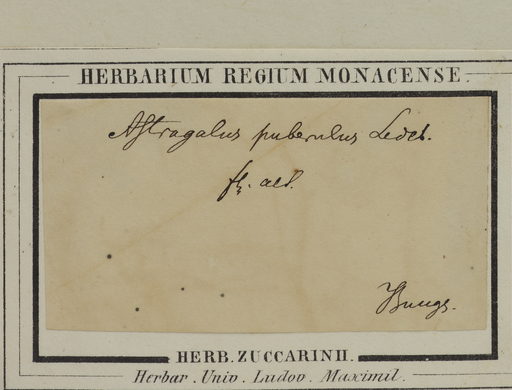 HERBARIUM REGIUM MONACENSE.
Astragalus puberulus Ledeb.
fl. alt.
Bunge.
HERB. ZUCCARINII.
Herbar. Univ. Ludov. Maximil.